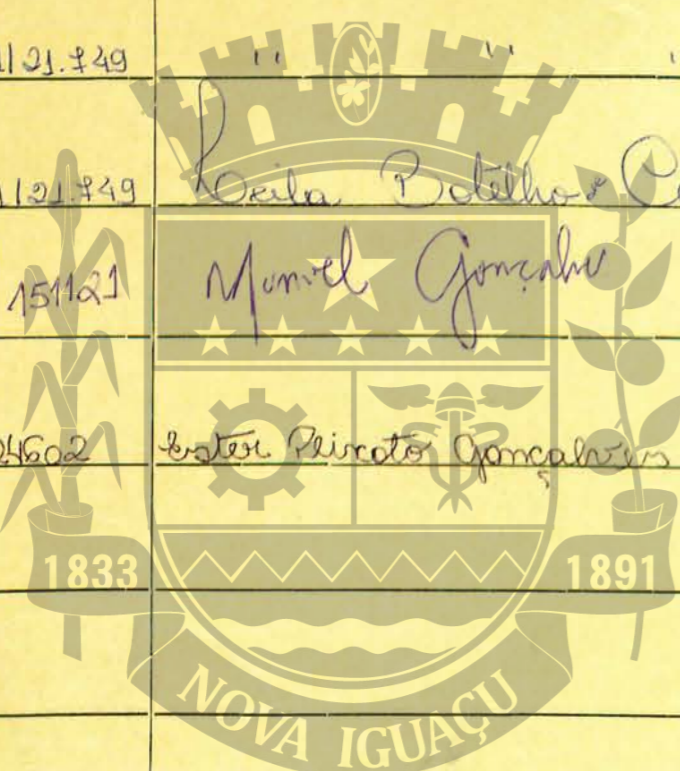 1/21.749 " " "
1/21.749 Leila Botelho
151121 Manoel Gonçalves
24602 Ester Peixoto Gonçalves
1833 1891
NOVA IGUAÇU